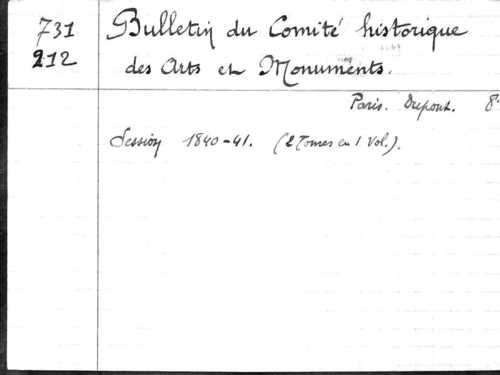 731 Bulletin du Comité historique
212 des Arts et Monuments.
Paris. Dupont. 8°
Session 1840-41. (2 Tomes en 1 Vol.).